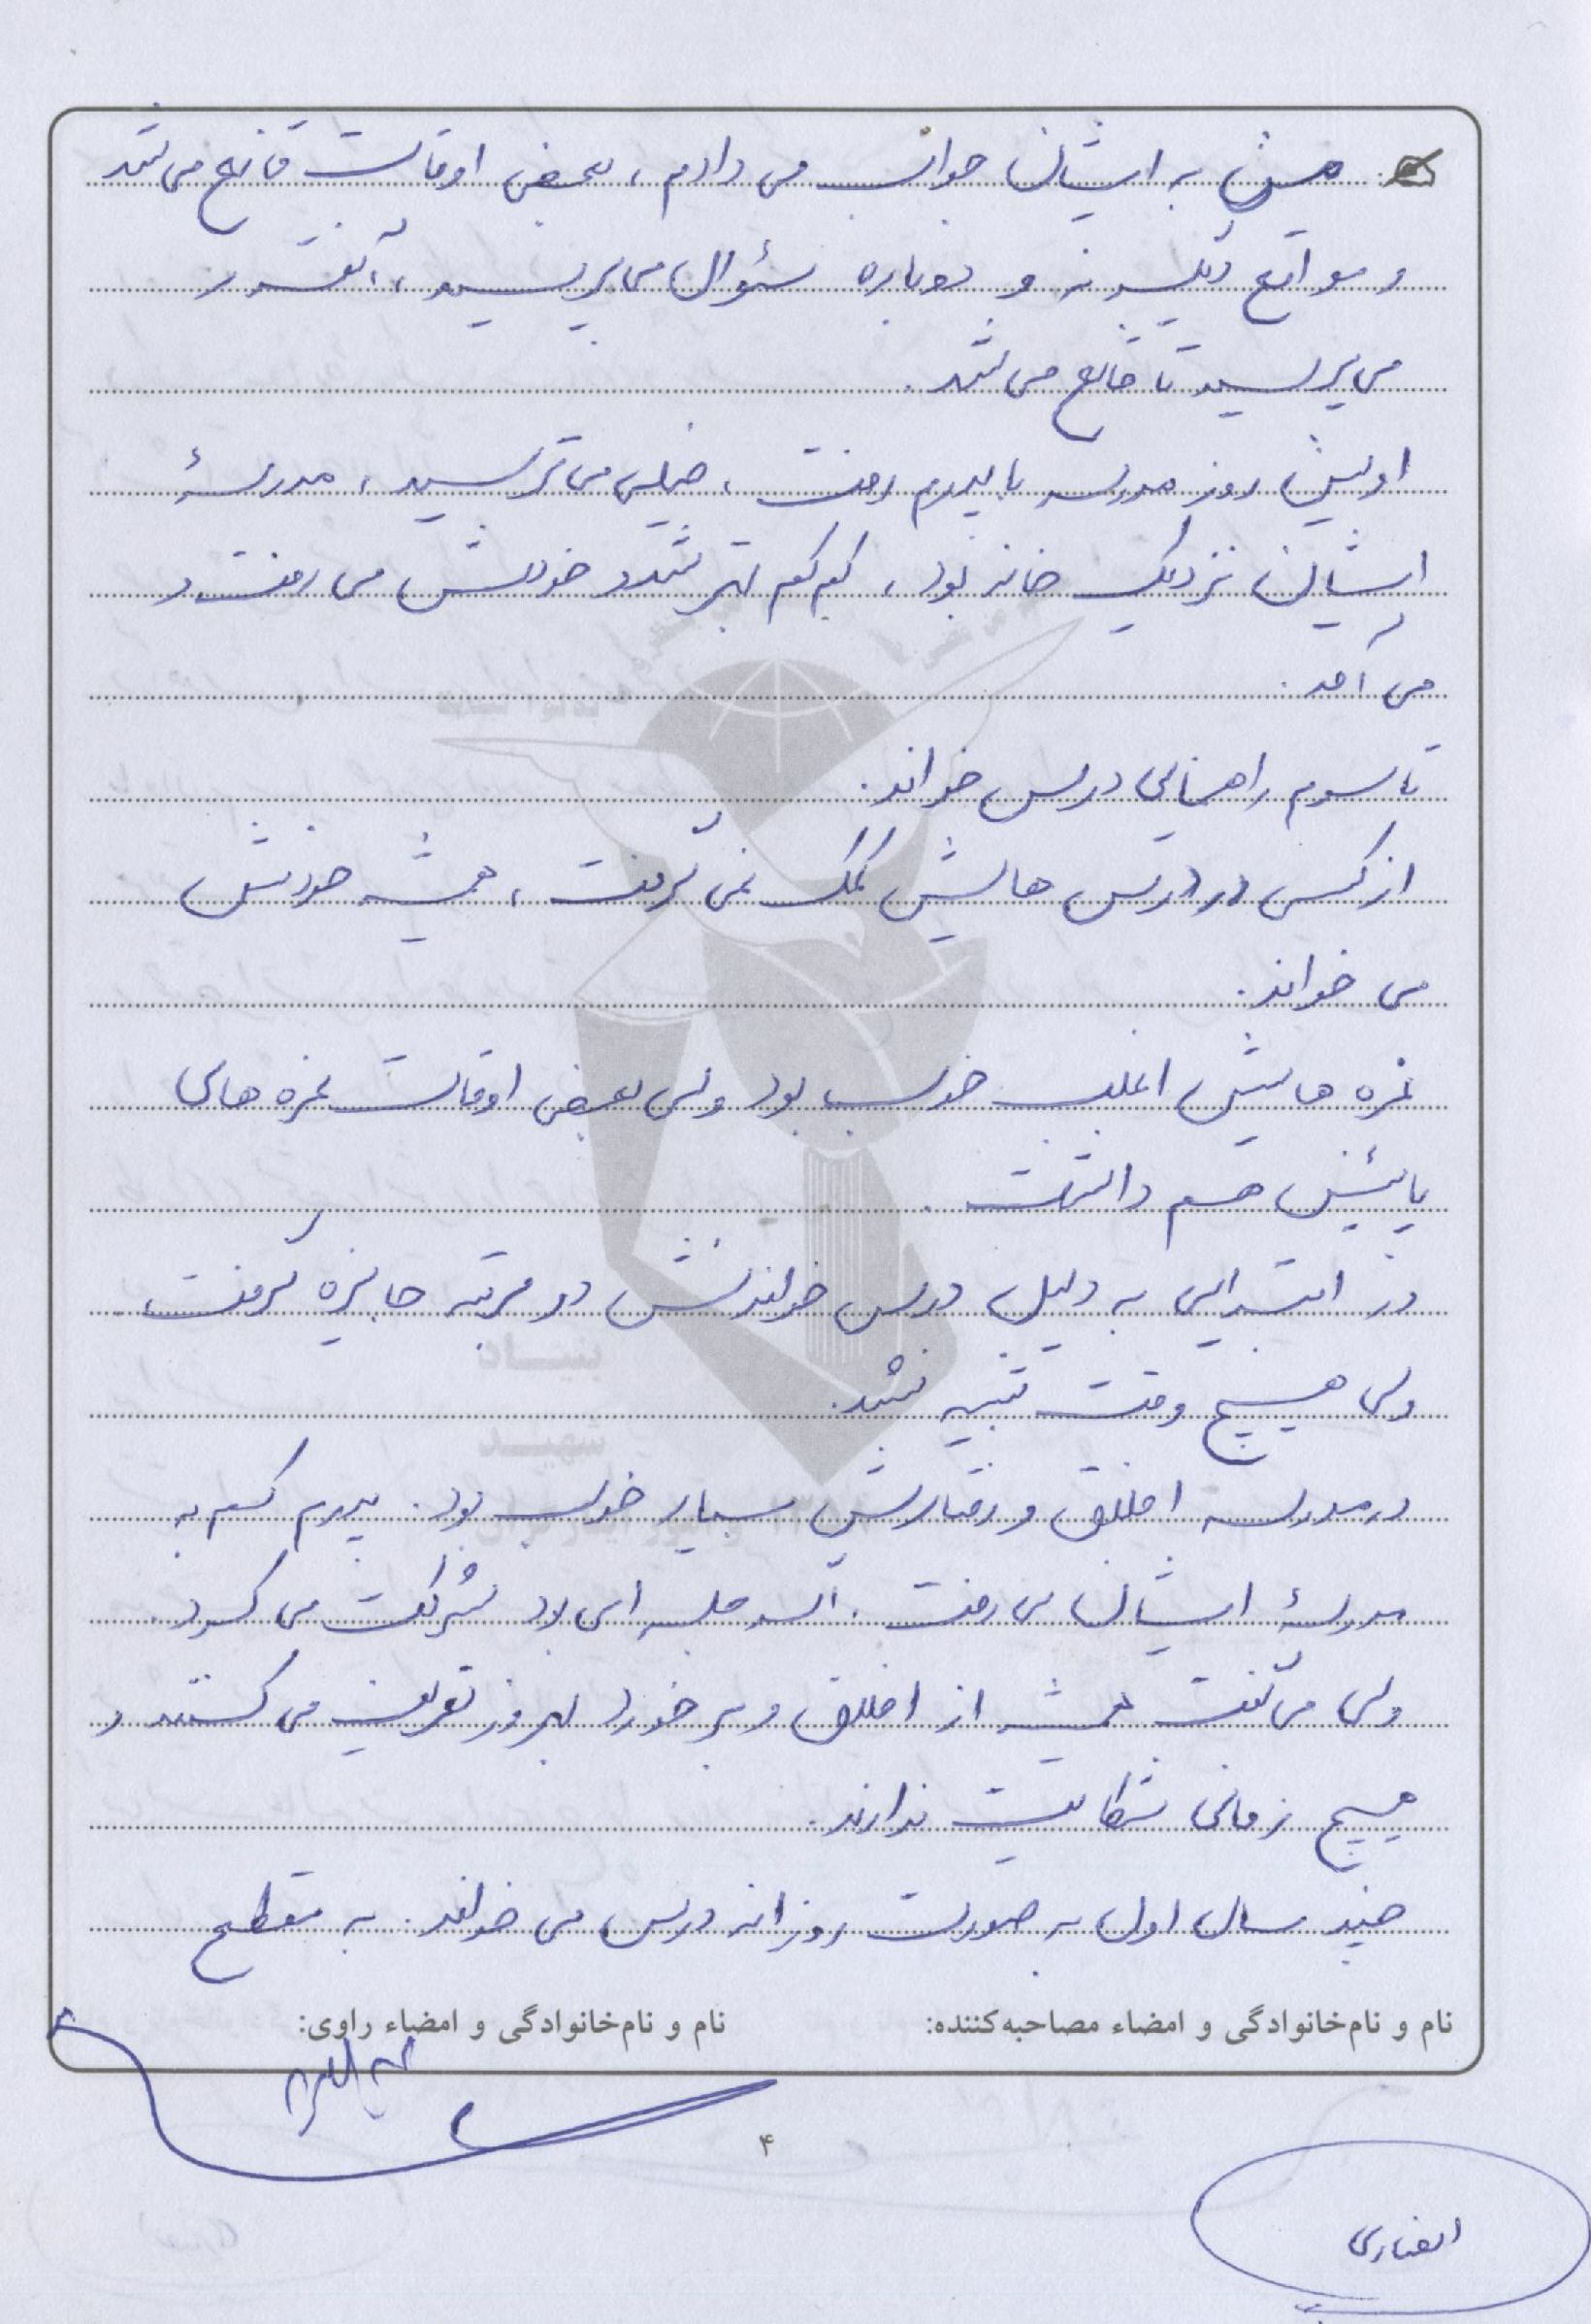 من به ایشان جواب می دادم، بعضی اوقات قانع می شد
و مواقع دیگر نه و دوباره سئوال می پرسید، آنقدر
می پرسید تا قانع می شد.
اولین روز مدرسه با پدرم رفت، خیلی می ترسید، مدرسهٔ
ایشان نزدیک خانه بود، کم کم بهتر شد و خودش می رفت و
می آمد.
تا سوم راهنمایی درس خواند.
از کسی در درس هایش کمک نمی گرفت، همیشه خودش
می خواند.
نمره هایش اغلب خوب بود ولی بعضی اوقات نمره های
پائین هم داشت.
در ابتدایی به دلیل درس خواندنش دو مرتبه جایزه گرفت
ولی هیچ وقت تنبیه نشد.
در مدرسه اخلاق و رفتارش بسیار خوب بود. پدرم کم به
مدرسهٔ ایشان می رفت. اگر جلسه ای بود شرکت می کرد.
ولی می گفت همیشه از اخلاق و برخورد بهروز تعریف می کنند و
هیچ زمانی شکایت ندارند.
چند سال اول به صورت روزانه درس می خواند. به مقطع
نام و نام‌خانوادگی و امضاء مصاحبه‌کننده: نام و نام‌خانوادگی و امضاء راوی:
۴
انصاری